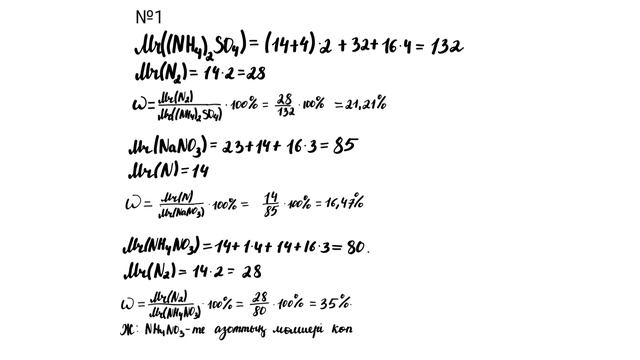 №1
Mr((NH₄)₂SO₄) = (14+4)·2 + 32 + 16·4 = 132
Mr(N₂) = 14·2 = 28
ω = Mr(N₂)/Mr((NH₄)₂SO₄) · 100% = 28/132 · 100% = 21,21%
Mr(NaNO₃) = 23 + 14 + 16·3 = 85
Mr(N) = 14
ω = Mr(N)/Mr(NaNO₃) · 100% = 14/85 · 100% = 16,47%
Mr(NH₄NO₃) = 14 + 1·4 + 14 + 16·3 = 80.
Mr(N₂) = 14·2 = 28
ω = Mr(N₂)/Mr(NH₄NO₃) · 100% = 28/80 · 100% = 35%.
Ж: NH₄NO₃-те азоттың мөлшері көп